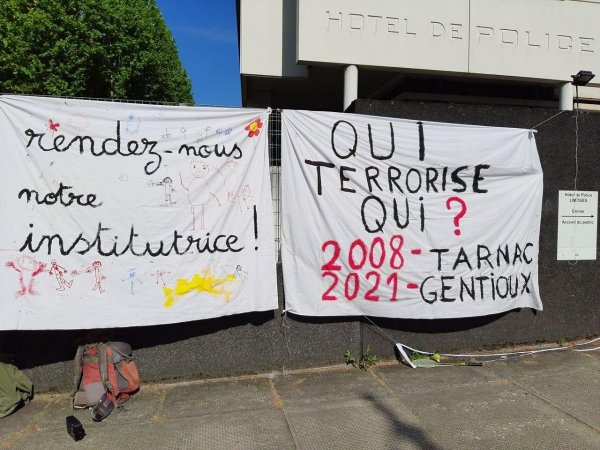 HOTEL DE POLICE
rendez-nous
notre
institutrice !
QUI
TERRORISE
QUI ?
2008-TARNAC
2021-GENTIOUX
Hôtel de Police
LIMOGES
Entrée
Accueil du public